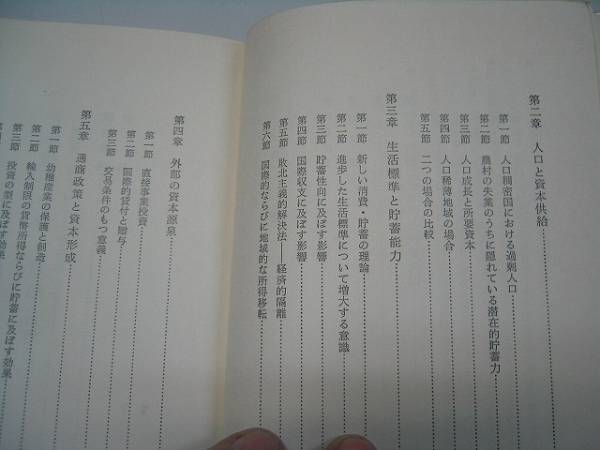 第二章 人口と資本供給
第一節 人口稠密国における過剰人口
第二節 農村の失業のうちに隠れている潜在的貯蓄力
第三節 人口成長と所要資本
第四節 人口稀薄地域の場合
第五節 二つの場合の比較
第三章 生活標準と貯蓄能力
第一節 新しい消費・貯蓄の理論
第二節 進歩した生活標準について増大する意識
第三節 貯蓄性向に及ぼす影響
第四節 国際収支に及ぼす影響
第五節 敗北主義的解決法――経済的隔離
第六節 国際的ならびに地域的な所得移転
第四章 外部の資本源泉
第一節 直接事業投資
第二節 国際的貸付と贈与
第三節 交易条件のもつ意義
第五章 通商政策と資本形成
第一節 幼稚産業の保護と創造
第二節 輸入制限の貨幣所得ならびに貯蓄に及ぼす効果
第三節 投資の型に及ぼす効果